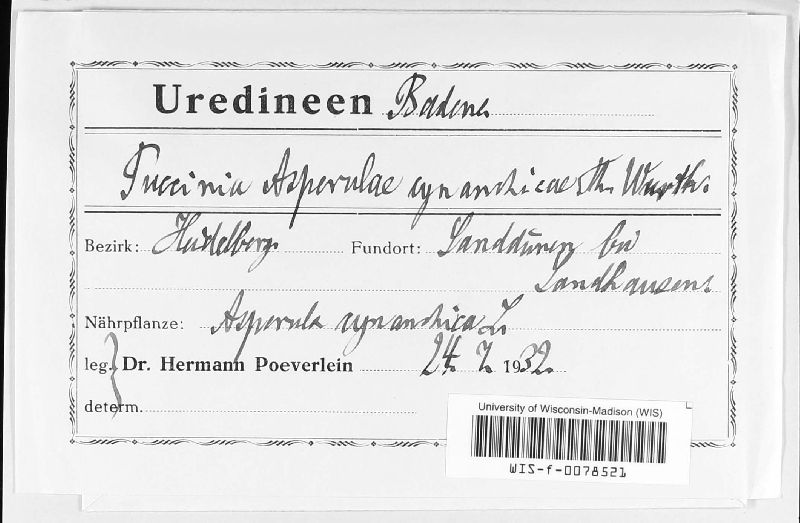 Uredineen Badens
Puccinia Asperulae cynanchicae Th. Wurth.
Bezirk: Heidelberg. Fundort: Sanddünen bei
Sandhausen.
Nährpflanze: Asperula cynanchica L.
leg. Dr. Hermann Poeverlein 24. 7. 1932.
determ.
University of Wisconsin-Madison (WIS)
WIS-f-0078521